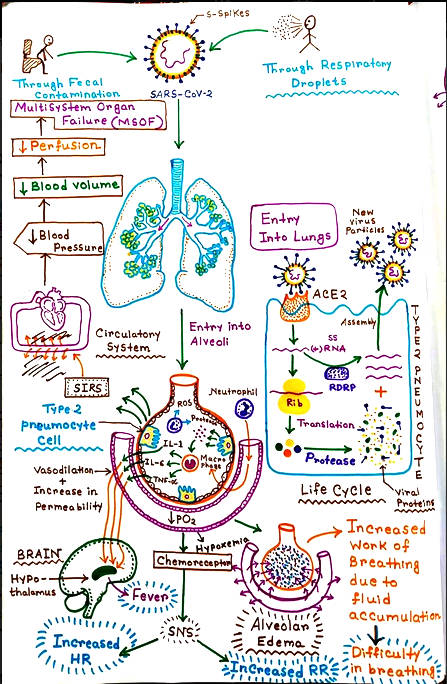 S-Spikes
Through Fecal
Contamination
SARS-CoV-2
Through Respiratory
Droplets
Multisystem Organ
Failure (MSOF)
↓ Perfusion
↓ Blood volume
↓ Blood
Pressure
Circulatory
System
SIRS
Entry into
Alveoli
Entry
Into Lungs
New
virus
Particles
ACE2
Assembly
SS
(+)RNA
RDRP
Rib
+
Translation
Protease
Viral
Proteins
Life Cycle
TYPE 2 PNEUMOCYTE
Type 2
pneumocyte
Cell
Neutrophil
ROS
Protease
IL-1
IL-6
TNF-α
Macro
phage
Vasodilation
+
Increase in
Permeability
↓PO2
Hypoxemia
Chemoreceptor
BRAIN
Hypo-
thalamus
Fever
SNS
Increased
HR
Alveolar
Edema
Increased RR
Increased
Work of
Breathing
due to
fluid
accumulation
Difficulty
in breathing